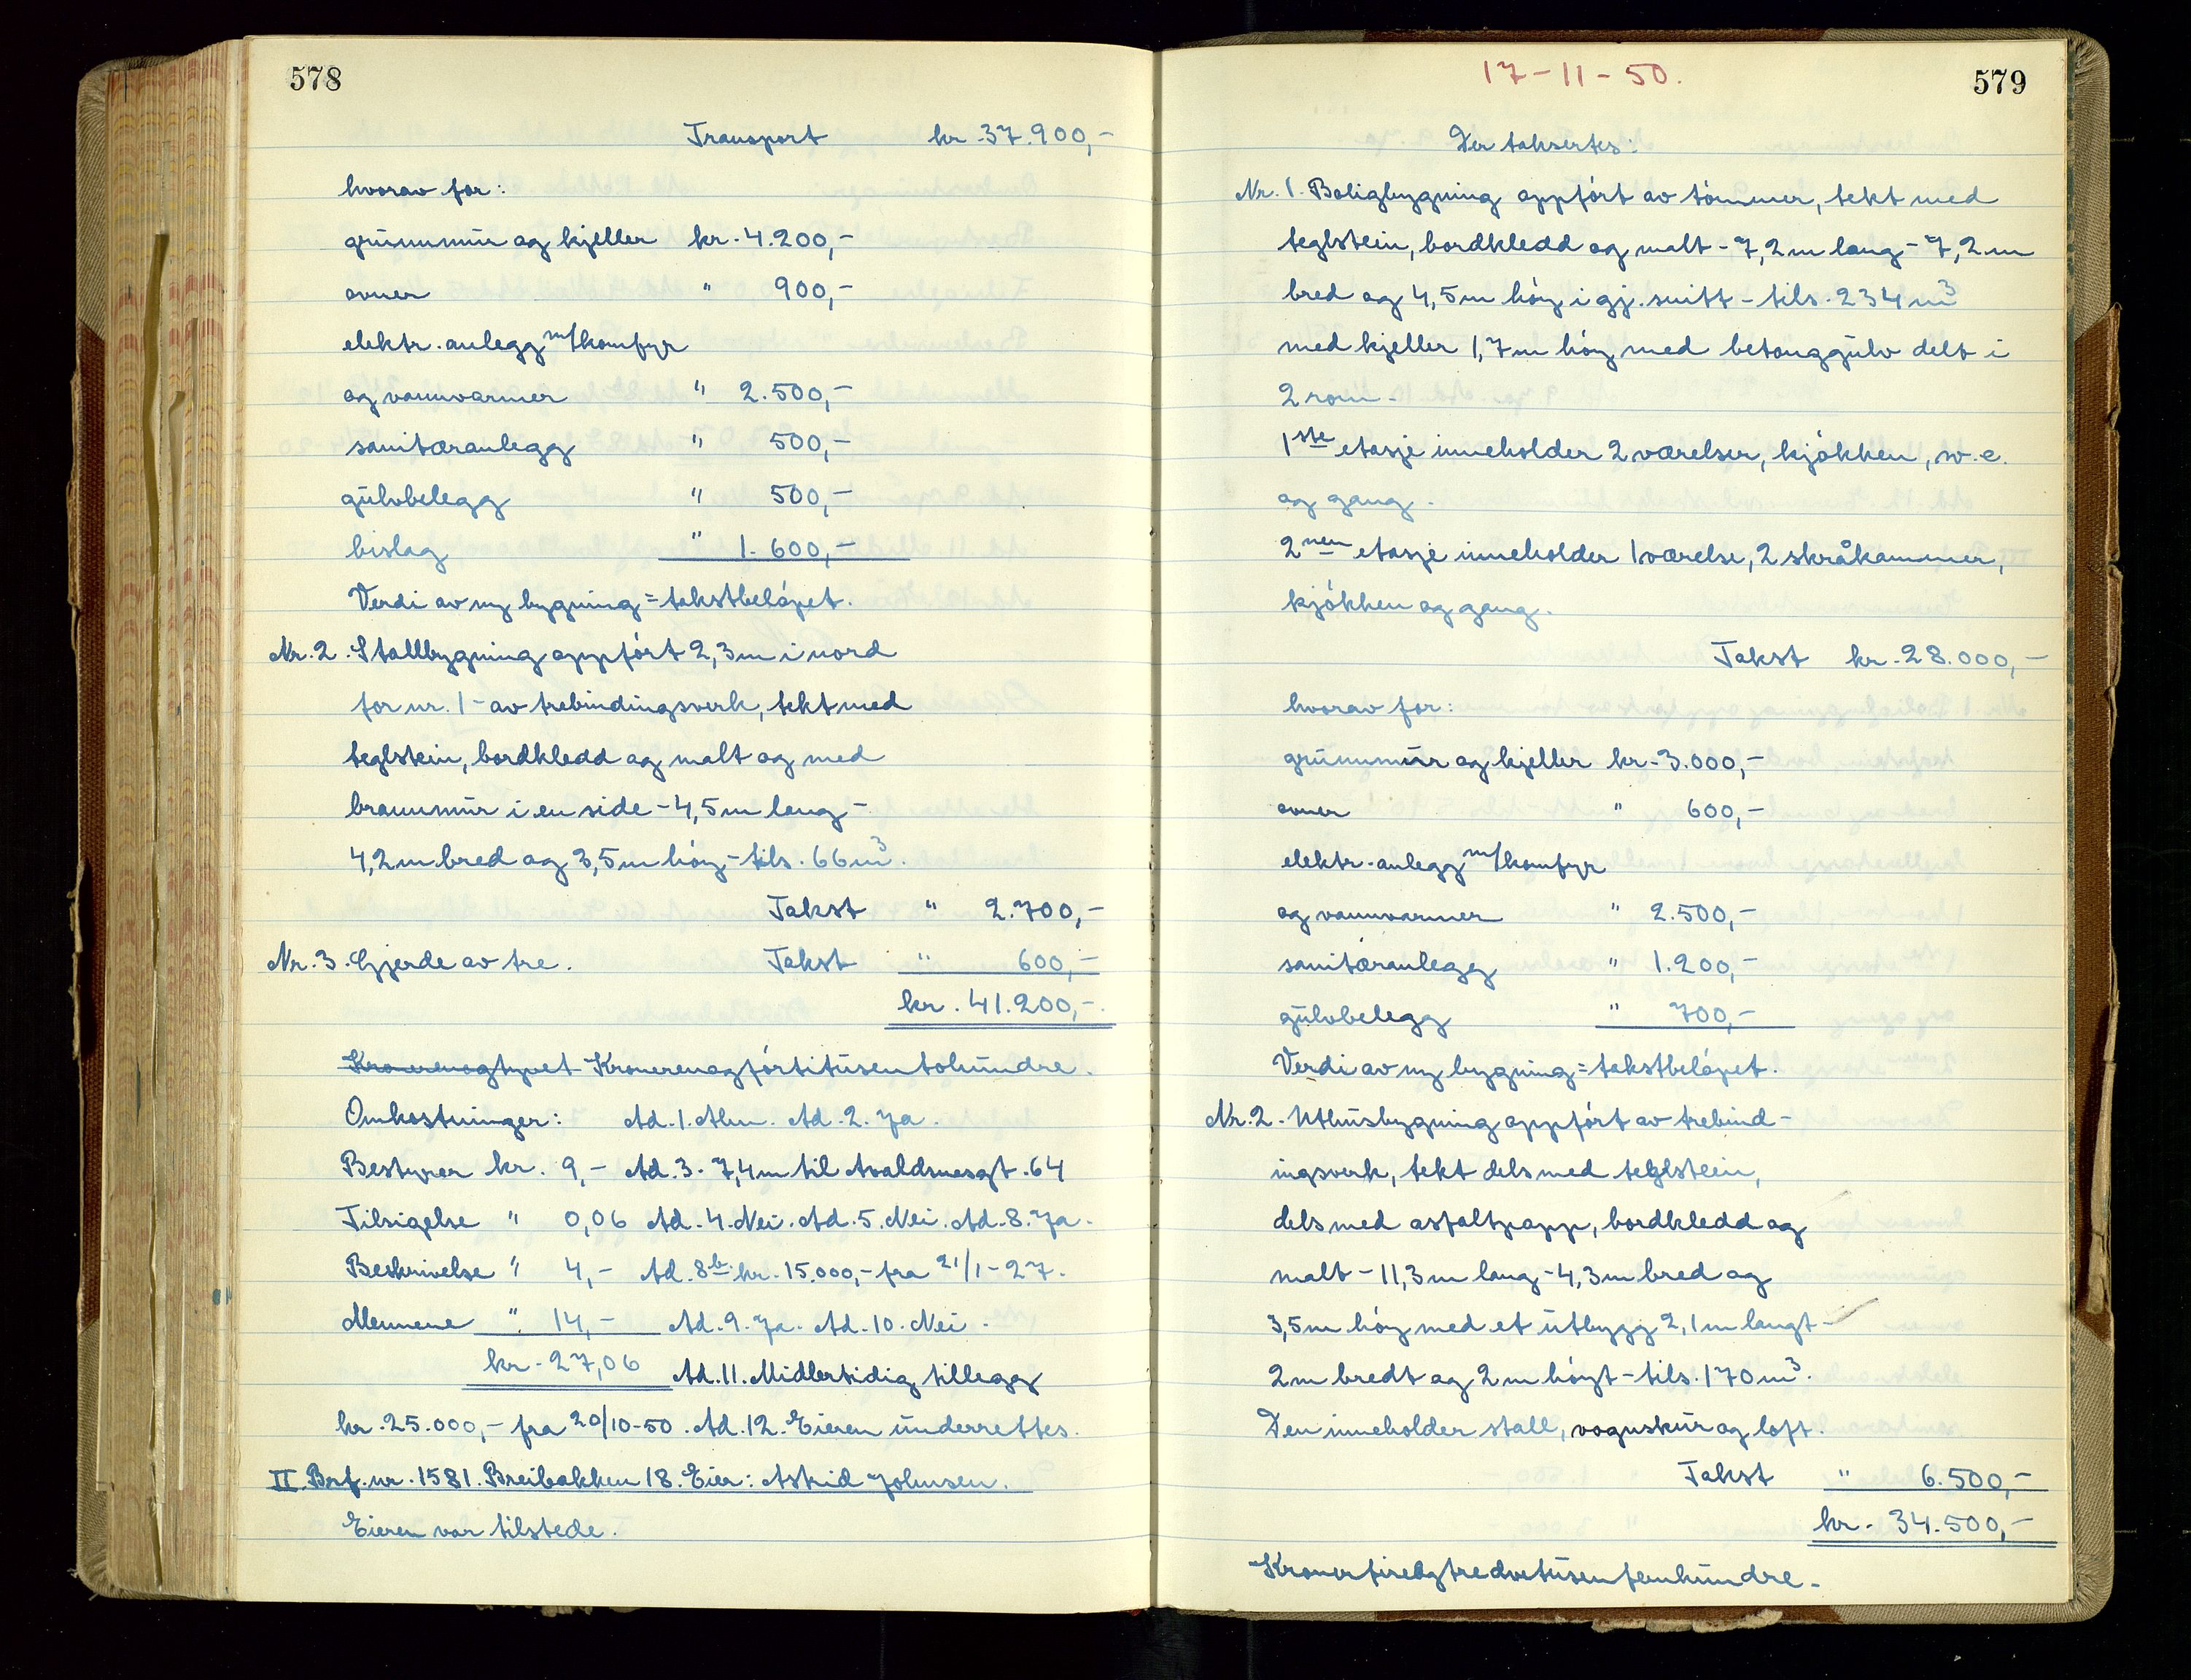 578
Transport kr. 37.900,-
hvorav for:
grunnmur og kjeller kr. 4.200,-
ovner " 900,-
elektr. anlegg m/komfyr
og vannvarmer " 2.500,-
sanitæranlegg " 500,-
gulvbelegg " 500,-
bislag " 1.600,-
Verdi av ny bygning = takstbeløpet.
Nr. 2. Stallbygning oppført 2,3 m i nord
for nr. 1 - av trebindingsverk, tekt med
teglstein, bordkledd og malt og med
brannmur i en side - 4,5 m lang -
4,2 m bred og 3,5 m høy - tils. 66 m³.
Takst " 2.700,-
Nr. 3. Gjerde av tre. Takst " 600,-
kr. 41.200,-
Kronerenogtyvet Kronerenogførtitusentohundre.
Omkostninger: Ad. 1. Alm. Ad. 2. Ja.
Bestyrer kr. 9,- Ad. 3. 7,4 m til Avaldsnesgt. 64
Tilsigelse " 0,06 Ad. 4. Nei. Ad. 5. Nei. Ad. 8. Ja.
Beskrivelse " 4,- Ad. 8 b. kr. 15.000,- fra 21/1-27.
Mennene " 14,- Ad. 9. Ja. Ad. 10. Nei.
kr. 27,06 Ad. 11. Midlertidig tillegg
kr. 25.000,- fra 20/10-50. Ad. 12. Eieren underrettes.
II Brf. nr. 1581. Breibakken 18. Eier: Astrid Johnsen.
Eieren var tilstede.
17-11-50.
579
Der taksertes:
Nr. 1. Boligbygning oppført av tømmer, tekt med
teglstein, bordkledd og malt - 7,2 m lang - 7,2 m
bred og 4,5 m høy i gj. snitt - tils. 234 m³
med kjeller 1,7 m høy med betonggulv delt i
2 rom.
1ste etasje inneholder 2 værelser, kjøkken, w.c.
og gang.
2nen etasje inneholder 1 værelse, 2 skråkammer,
kjøkken og gang.
Takst kr. 28.000,-
hvorav for:
grunnmur og kjeller kr. 3.000,-
ovner " 600,-
elektr. anlegg m/komfyr
og vannvarmer " 2.500,-
sanitæranlegg " 1.200,-
gulvbelegg " 700,-
Verdi av ny bygning = takstbeløpet.
Nr. 2. Uthusbygning oppført av trebind-
ingsverk, tekt dels med teglstein,
dels med asfaltpapp, bordkledd og
malt - 11,3 m lang - 4,3 m bred og
3,5 m høy med et utbygg 2,1 m langt -
2 m bredt og 2 m høyt - tils. 170 m³.
Den inneholder stall, vognskur og loft.
Takst " 6.500,-
kr. 34.500,-
Kronerfireogtredvetusenfemhundre.